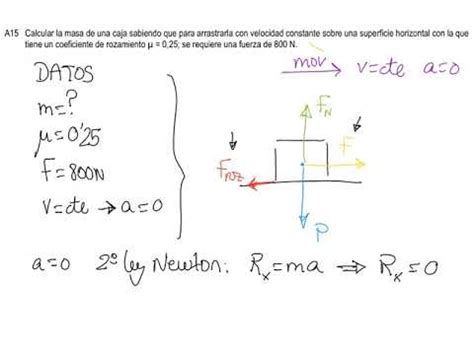 A15 Calcular la masa de una caja sabiendo que para arrastrarla con velocidad constante sobre una superficie horizontal con la que
tiene un coeficiente de rozamiento μ = 0,25; se requiere una fuerza de 800 N.
DATOS
m=?
μ=0'25
F=800N
v=cte → a=0
mov
v=cte a=0
F_N
F
F_roz
P
a=0 2º ley Newton: R_x=ma ⇒ R_x=0